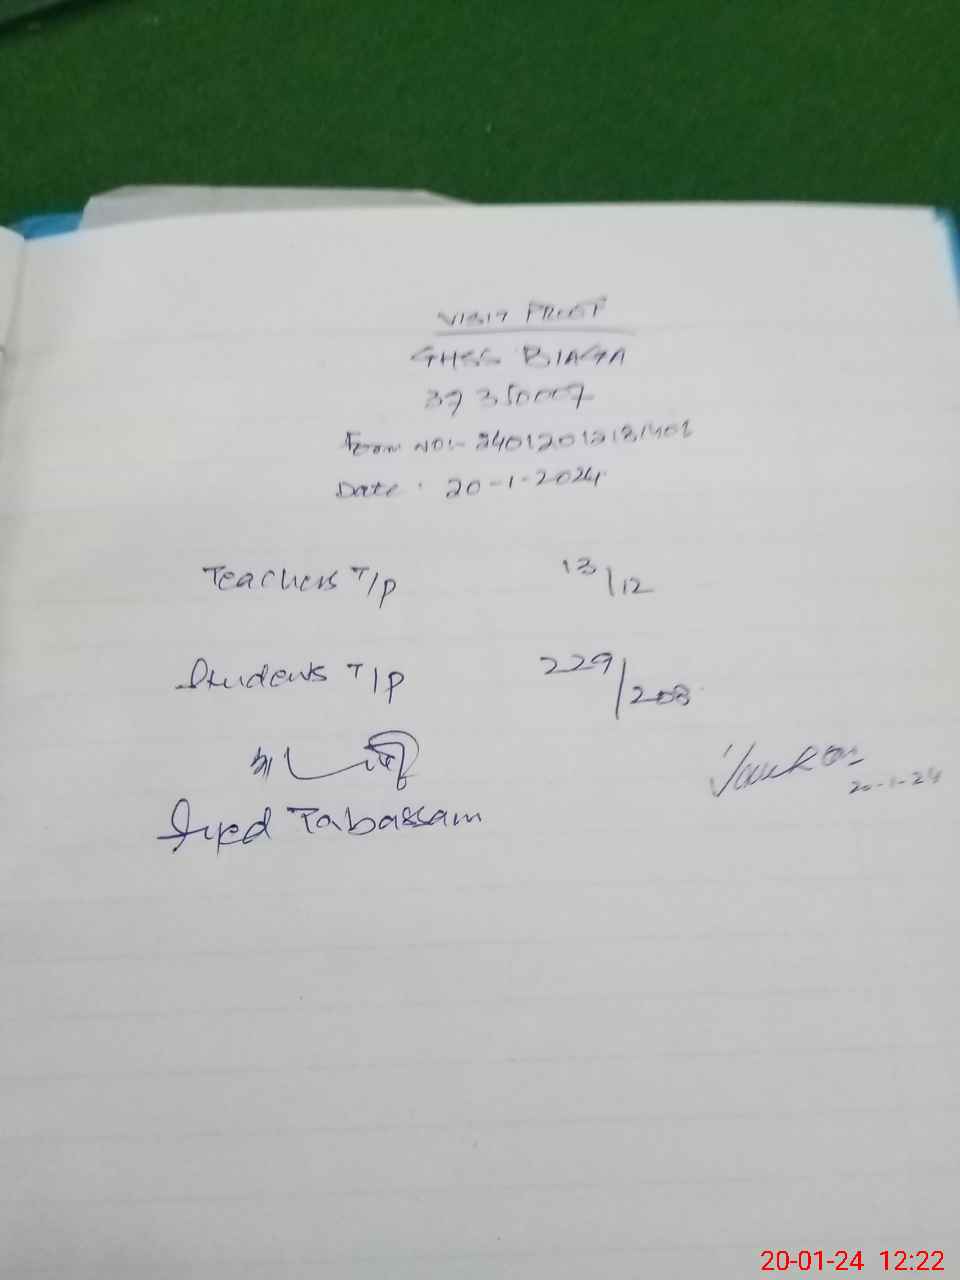 VISIT PROOF
GHSS BIAGA
37350007
Form NO:-
Date: 20-1-2024
Teachers T/P 13/12
Students T/P 229/208
Syed Tabassam
20-1-24
20-01-24 12:22